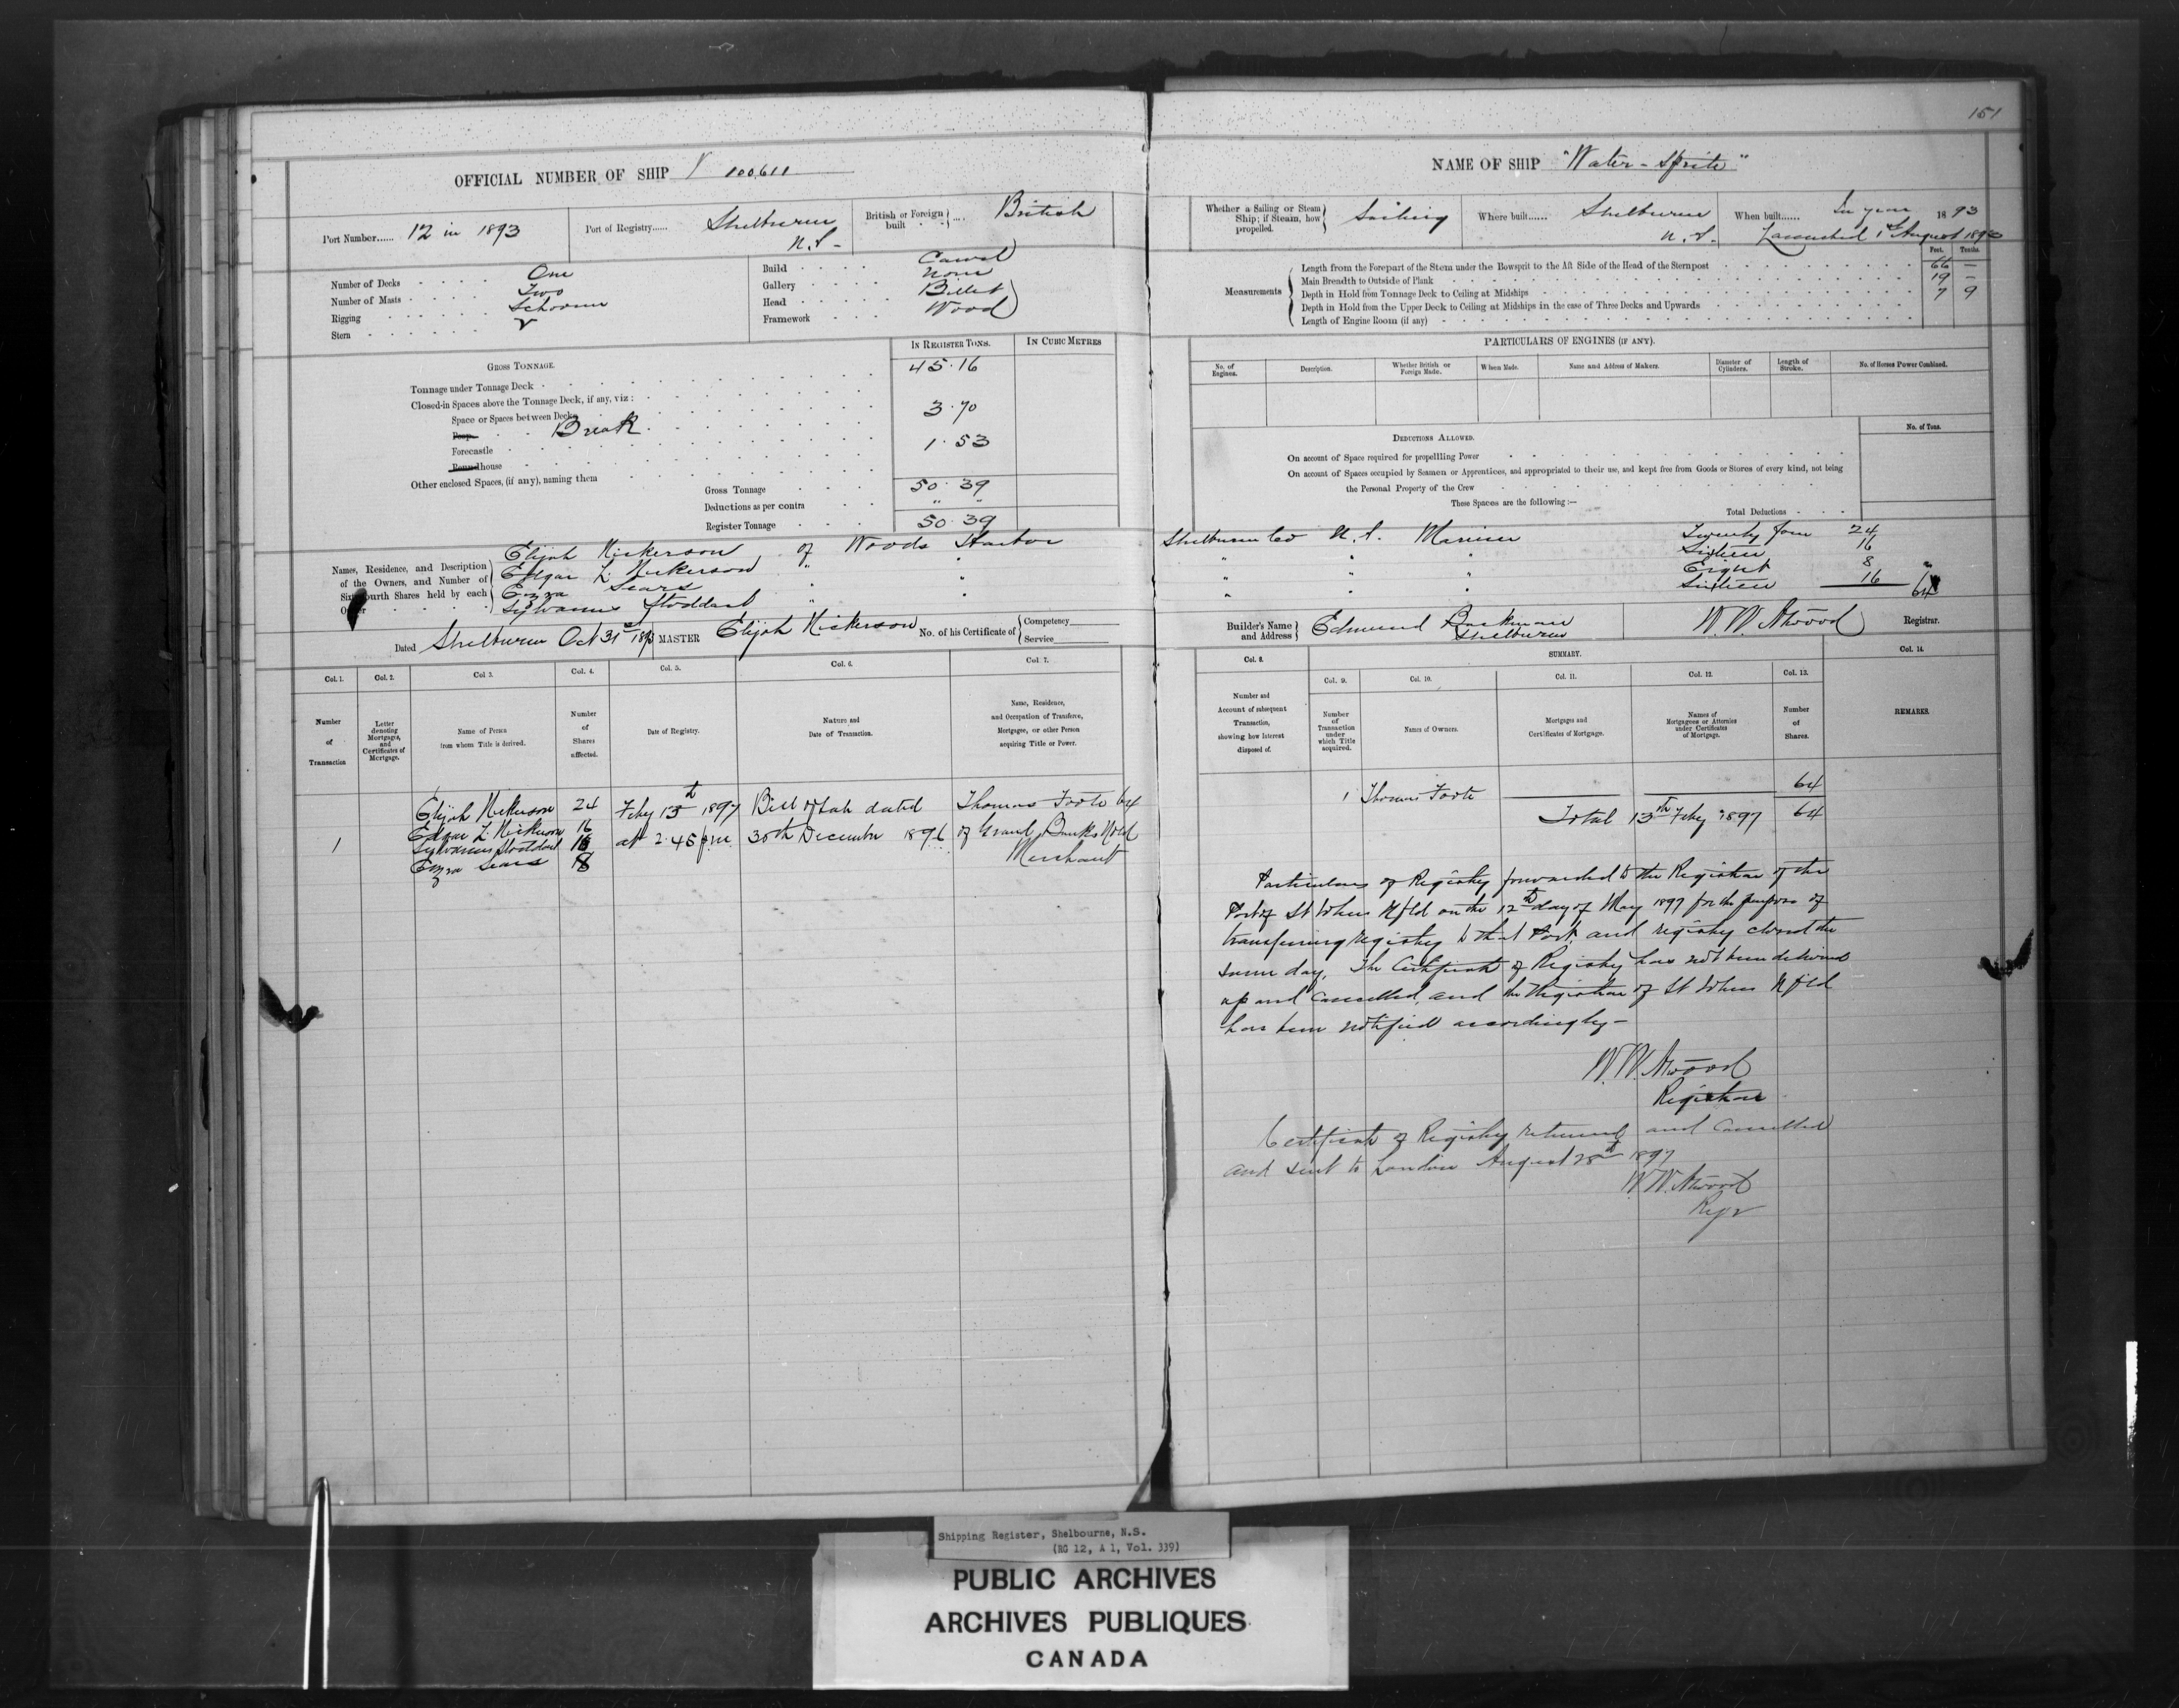 151
OFFICIAL NUMBER OF SHIP 100,611
NAME OF SHIP "Water-Sprite"
Port Number...... 12 in 1893
Port of Registry...... Shelburne N.S-
British or Foreign built ... British
Whether a Sailing or Steam Ship; if Steam, how propelled. Sailing
Where built...... Shelburne N.S.
When built...... In year 1893
Launched 1st August 1893
Number of Decks One
Number of Masts Two
Rigging Schooner
Stern
Build Carvel
Gallery None
Head Billet
Framework Wood
Feet. Tenths.
Measurements
Length from the Forepart of the Stem under the Bowsprit to the Aft Side of the Head of the Sternpost 66 —
Main Breadth to Outside of Plank 19 —
Depth in Hold from Tonnage Deck to Ceiling at Midships 7 9
Depth in Hold from the Upper Deck to Ceiling at Midships in the case of Three Decks and Upwards
Length of Engine Room (if any)
GROSS TONNAGE.
IN REGISTER TONS.
IN CUBIC METRES
Tonnage under Tonnage Deck 45.16
Closed-in Spaces above the Tonnage Deck, if any, viz:
Space or Spaces between Decks
Poop Break 3.70
Forecastle 1.53
Roundhouse
Other enclosed Spaces, (if any), naming them
Gross Tonnage 50.39
Deductions as per contra " "
Register Tonnage 50.39
PARTICULARS OF ENGINES (IF ANY).
No. of Engines.
Description.
Whether British or Foreign Made.
When Made.
Name and Address of Makers.
Diameter of Cylinders.
Length of Stroke.
No. of Horses Power Combined.
DEDUCTIONS ALLOWED.
No. of Tons.
On account of Space required for propelling Power
On account of Spaces occupied by Seamen or Apprentices, and appropriated to their use, and kept free from Goods or Stores of every kind, not being
the Personal Property of the Crew
These Spaces are the following:—
Total Deductions
Names, Residence, and Description of the Owners, and Number of Sixty-fourth Shares held by each Owner
Elijah Nickerson, of Woods Harbor Shelburne Co N.S. Mariner Twenty four 24
Edgar L. Nickerson " " " " " Sixteen 16
Ezra Sears " " " " " Eight 8 "
Sylvanus Stoddart " " " " " Sixteen 16 64
Dated Shelburne Oct 31st 1893
MASTER Elijah Nickerson
No. of his Certificate of Competency
Service
Builder's Name and Address Edmund Shelburne
W. W. Atwood Registrar.
Col. 1. Number of Transaction
Col. 2. Letter denoting Mortgages, and Certificates of Mortgage.
Col 3. Name of Person from whom Title is derived.
Col. 4. Number of Shares affected.
Col. 5. Date of Registry.
Col. 6. Nature and Date of Transaction.
Col 7. Name, Residence, and Occupation of Transferee, Mortgagee, or other Person acquiring Title or Power.
Col. 8. Number and Account of subsequent Transaction, showing how Interest disposed of.
SUMMARY.
Col. 9. Number of Transaction under which Title acquired.
Col. 10. Names of Owners.
Col. 11. Mortgages and Certificates of Mortgage.
Col. 12. Names of Mortgagees or Attornies under Certificates of Mortgage.
Col. 13. Number of Shares.
Col. 14. REMARKS.
Elijah Nickerson 24 Feby 13th 1897 Bill of Sale dated Thomas Foote 64
Edgar L. Nickerson 16
1 Sylvanus Stoddart 16 at 2.45 p.m. 30th December 1896 of Grand Banks Nfld
Ezra Sears 8 Merchant
1 Thomas Foote 64
Total 13th Feby 1897 64
Particulars of Registry forwarded to the Registrar of the
Port of St Johns Nfld on the 12th day of May 1897 for the purpose of
transferring registry to that Port, and registry closed the
same day. The Certificate of Registry has not been delivered
up and cancelled, and the Registrar of St Johns Nfld
has been notified accordingly-
W. W. Atwood
Registrar
Certificate of Registry returned and cancelled
and sent to London August 28th 1897
W. W. Atwood
Regr
Shipping Register, Shelbourne, N.S.
(RG 12, A 1, Vol. 339)
PUBLIC ARCHIVES
ARCHIVES PUBLIQUES
CANADA